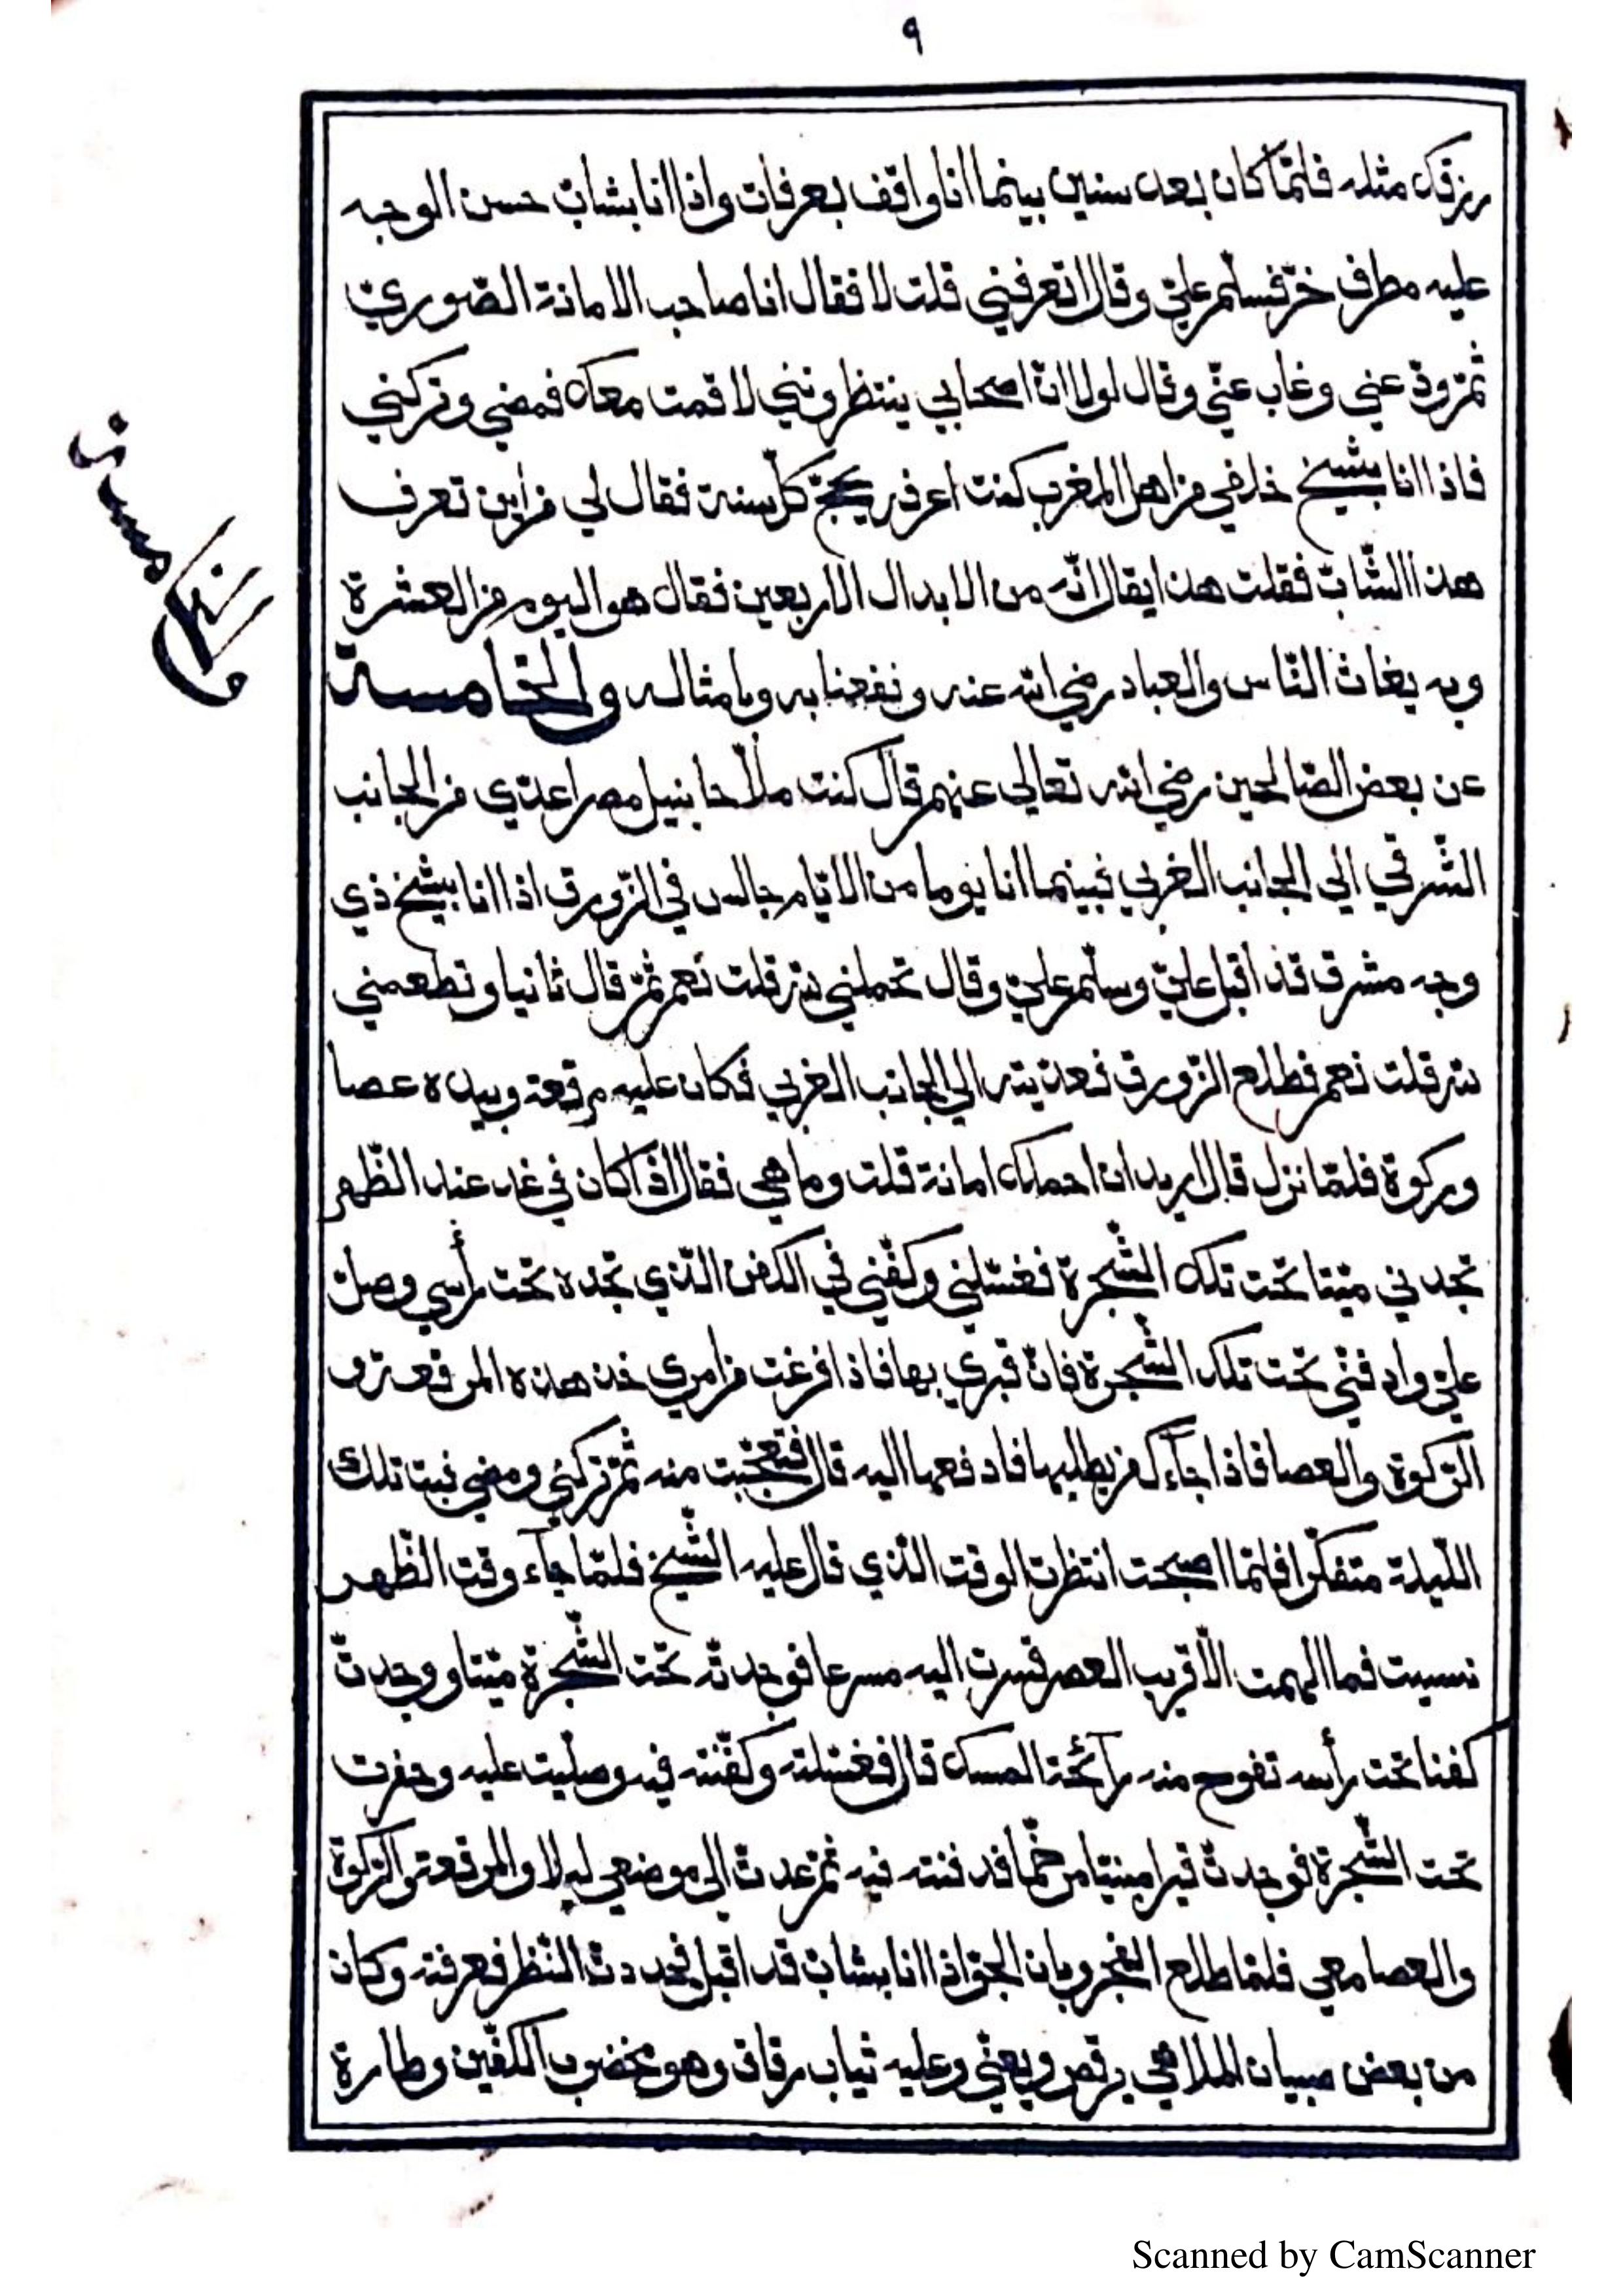 ٩
رزقك مثله فلمّا كان بعد سنين بينما انا واقف بعرفات واذا انا بشابّ حسن الوجه
عليه مطرف خزّ فسلّم عليّ وقال اتعرفني قلت لا فقال انا صاحب الامانة الصّوريّ
ثمّ ودّعني وغاب عنّي وقال لولا انّ اصحابي ينتظرونني لاقمت معك فمضي وتركني
فاذا انا بشيخ خلفي من اهل المغرب كنت اعرفه يحجّ كلّ سنة فقال لي من اين تعرف
هذا الشّابّ فقلت هذا يقال انّه من الابدال الاربعين فقال هو اليوم من العشرة
وبه يغاث النّاس والعباد رضي الله عنه ونفعنا به وبامثاله والخامسة
عن بعض الصّالحين رضي الله تعالي عنهم قال كنت ملّاحا بنيل مصر اعدّي من الجانب
الشّرقي الي الجانب الغربي فبينما انا يوما من الايّام جالس في الزّورق اذا انا بشيخ ذي
وجه مشرق قد اقبل عليّ وسلّم عليّ وقال تحملني لله قلت نعم ثمّ قال ثانيا وتطعمني
لله قلت نعم فطلع الزّورق فعدّيته الي الجانب الغربي فكان عليه مرقعة وبيده عصا
وركوة فلمّا نزل قال اريد ان احملك امانة قلت وما هي فقال اذا كان في غد عند الظّهر
تجدني ميّتا تحت تلك الشّجرة فغسّلني وكفّني في الكفن الّذي تجده تحت رأسي وصلّ
عليّ وادفنّي تحت تلك الشّجرة فانّ قبري بها فاذا فرغت من امري خذ هذه المرقعة و
الرّكوة والعصا فاذا جآءك من يطلبها فادفعها اليه قال فتعجّبت منه ثمّ تركني ومضي فبت تلك
اللّيلة متفكّرا فلمّا اصبحت انتظرت الوقت الّذي قال عليه الشّيخ فلمّا جآء وقت الظّهر
نسيت فما الهمت الّا قريب العصر فسرت اليه مسرعا فوجدته تحت الشّجرة ميّتا ووجدتّ
كفنا تحت رأسه تفوح منه رآئحة المسك قال فغسّلته وكفّنته فيه وصلّيت عليه وحفرت
تحت الشّجرة فوجدتّ قبرا مبنيّا مرخّما فدفنته فيه ثمّ عدتّ الي موضعي ليلا والمرقعة والرّكوة
والعصا معي فلمّا طلع الفجر وبان الجوّ اذا انا بشابّ قد اقبل فحددتّ النّظر فعرفته وكان
من بعض صبيان الملاهي يرقص ويغنّي وعليه ثياب رقاق وهو مخضوب الكفّين وطارة